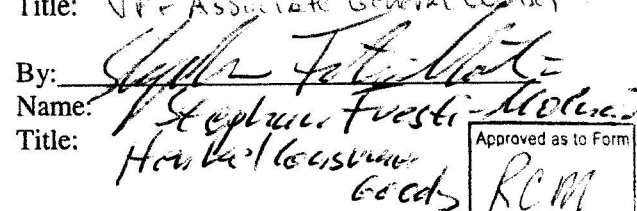 Title: VP + Associate General Counsel
By:
Name: Stephan
Title: Henkel Consumer
Goods
Approved as to Form
RCM